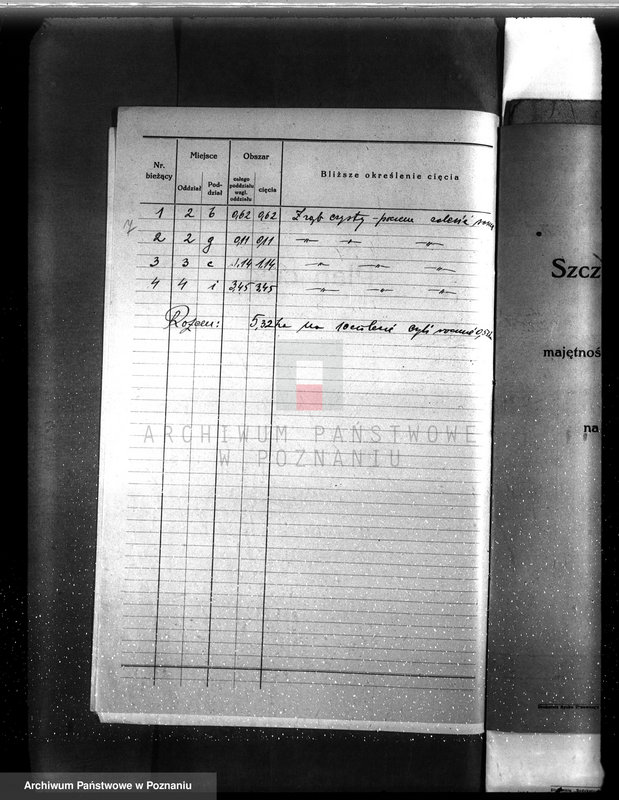 Nr. bieżący Miejsce Obszar Bliższe określenie cięcia
Oddział Poddział całego poddziału wzgl. oddziału cięcia
1 2 b 0,62 0,62 Zrąb czysty
2 2 g 0,11 0,11 -"- -"- -"-
3 3 c 1,14 1,14 -"- -"- -"-
4 4 i 3,45 3,45 -"- -"- -"-
Razem: 5,32 ha na czyli
ARCHIWUM PAŃSTWOWE
W POZNANIU
Szcz
majętnoś
na
Archiwum Państwowe w Poznaniu